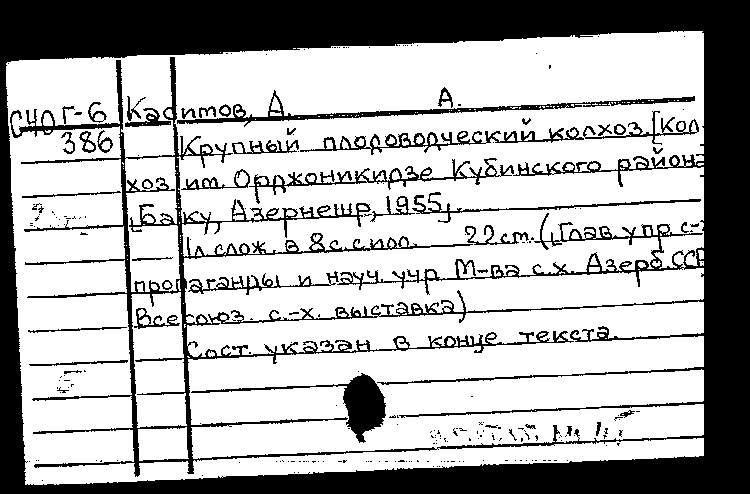 С40Г-6 Касимов, А. А.
386 Крупный плодоводческий колхоз. [Кол-
хоз им. Орджоникидзе Кубинского района
[Баку, Азернешр, 1955].
1л слож. в 8 с. с илл. 22 см. ([Глав. упр с-х
пропаганды и науч. учр. М-ва с.х. Азерб. ССР
Всесоюз. с.-х. выставка)
Сост. указан в конце текста.